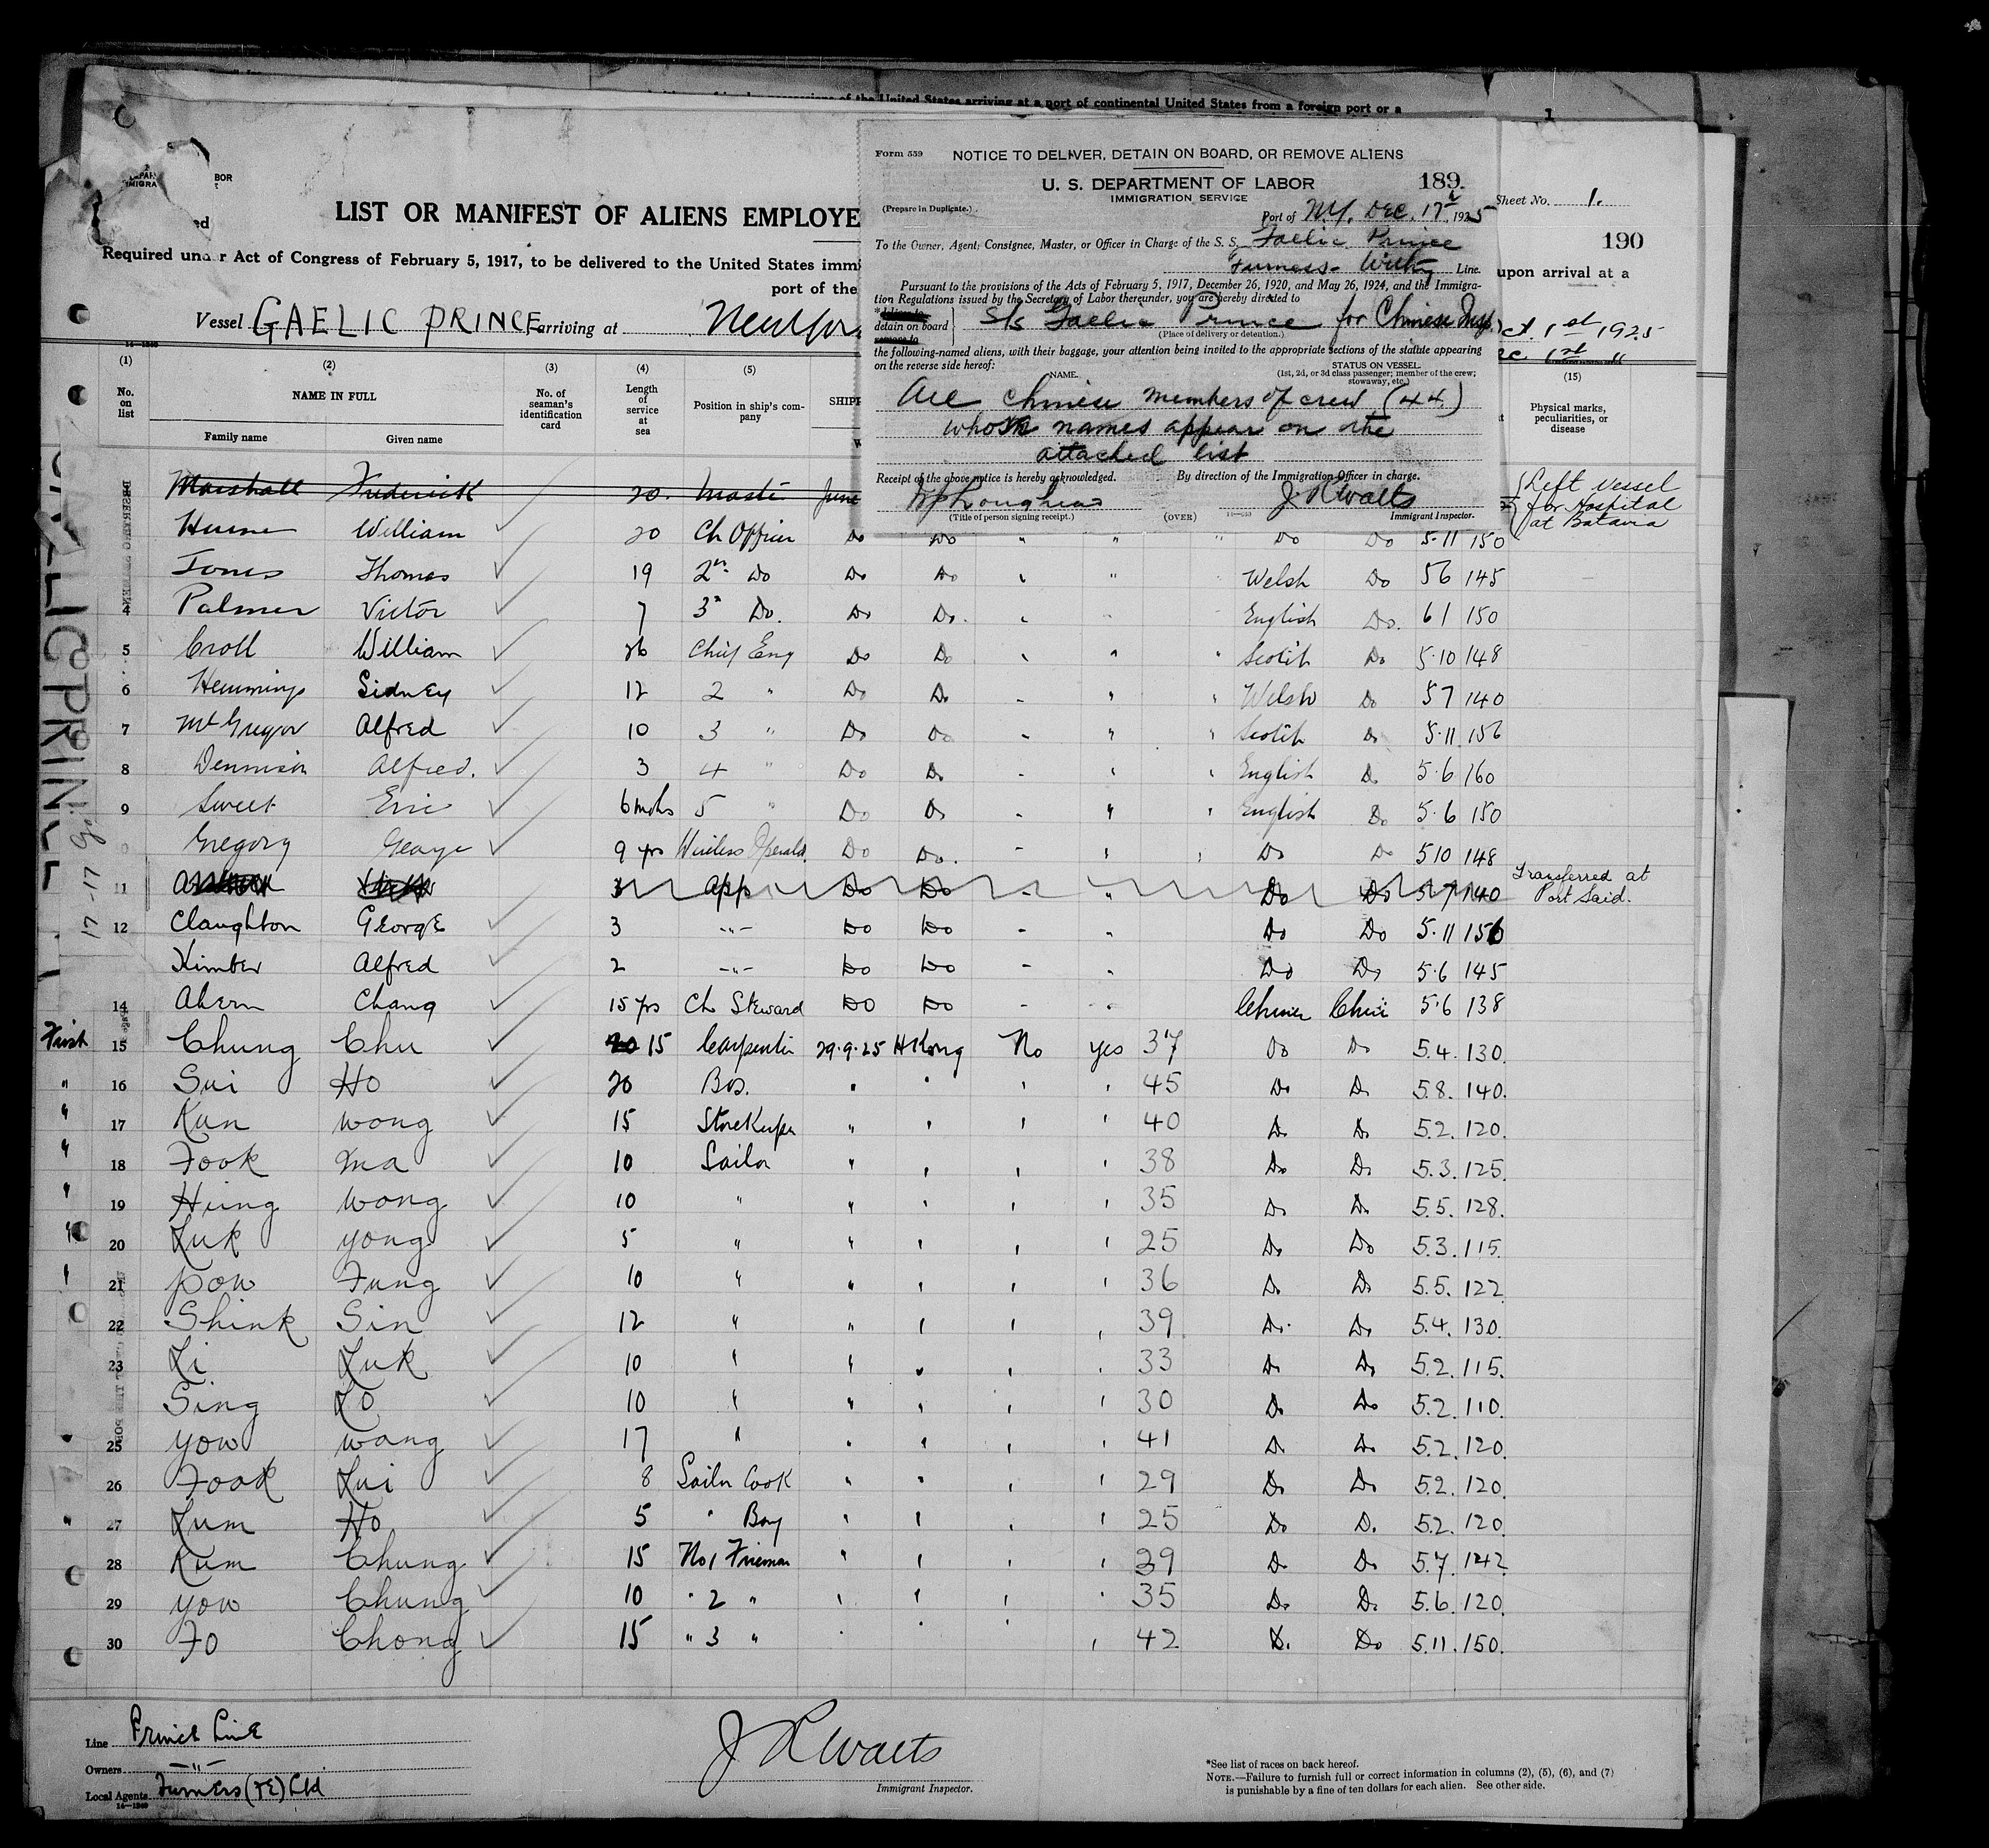 of the United States arriving at a port of continental United States from a foreign port or a
1
BOR
LIST OR MANIFEST OF ALIENS EMPLOYE
Required under Act of Congress of February 5, 1917, to be delivered to the United States immi
port of the
Vessel GAELIC PRINCE arriving at New Yor
Form 559 NOTICE TO DELIVER, DETAIN ON BOARD, OR REMOVE ALIENS
U. S. DEPARTMENT OF LABOR 189
IMMIGRATION SERVICE
(Prepare in Duplicate.)
Port of N.Y. Dec. 17, 1925
To the Owner, Agent, Consignee, Master, or Officer in Charge of the S. S. Gaelic Prince
Furness-Withy Line.
Pursuant to the provisions of the Acts of February 5, 1917, December 26, 1920, and May 26, 1924, and the Immigra-
tion Regulations issued by the Secretary of Labor thereunder, you are hereby directed to
detain on board } S/s Gaelic Prince for Chinese Insp.
(Place of delivery or detention.)
the following-named aliens, with their baggage, your attention being invited to the appropriate sections of the statute appearing
on the reverse side hereof:
NAME. STATUS ON VESSEL
(1st, 2d, or 3d class passenger; member of the crew;
stowaway, etc.)
All Chinese members of crew (44)
whose names appear on the
attached list
Receipt of the above notice is hereby acknowledged. By direction of the Immigration Officer in charge.
J R Watts
(Title of person signing receipt.) (OVER) Immigrant Inspector.
Sheet No. 1.
190
upon arrival at a
ct. 1st 1925
ec. 1st "
(1) (2) (3) (4) (5) (15)
No. on list NAME IN FULL No. of seaman's identification card Length of service at sea Position in ship's company SHIPP Physical marks, peculiarities, or disease
Family name Given name
Marshall Frederick 20 Master June Left vessel for Hospital at Batavia
Hume William 20 Ch Officer Do Do " " " Do Do 5.11 150
Jones Thomas 19 2nd Do Do Do " " Welsh Do 56 145
4 Palmer Victor 7 3rd Do. Do Do. " English Do. 61 150
5 Croll William 26 Chief Eng Do Do " " " Scotch Do 5.10 148
6 Hemmings Sidney 12 2 " Do Do - " " Welsh Do 57 140
7 McGregor Alfred 10 3 " Do Do - " " Scotch Do 5.11 156
8 Dennison Alfred. 3 4 " Do Do - " " English Do 5.6 160
9 Sweet Eric 6 mths 5 " Do Do - " " English Do 5.6 150
Gregory George 9 yrs Wireless Operator Do Do. - " " Do Do 510 148
11 3 App Do Do - " Do Do 5.7 140 Transferred at Port Said.
12 Claughton George 3 -"- Do Do - " Do Do 5.11 156
Kimber Alfred 2 -"- Do Do - " Do Do 5.6 145
14 Ahern Chang 15 yrs Ch Steward Do Do - " Chinese Chin 5.6 138
First 15 Chung Chu 15 Carpenter 29.9.25 HKong No yes 37 Do Do 5.4. 130.
" 16 Sui Ho 20 Bos. " " " " 45 Do Do 5.8. 140.
" 17 Kun Wong 15 Storekeeper " " " " 40 Do Do 5.2. 120.
" 18 Fook Ma 10 Sailor " " " " 38 Do Do 5.3. 125.
" 19 Hung Wong 10 " " " " " 35 Do Do 5.5. 128.
" 20 Luk yong 5 " " " " " 25 Do Do 5.3. 115.
" 21 pow Fung 10 " " " " " 36 Do Do 5.5. 122
22 Shink Sin 12 " " " " " 39 Do Do 5.4. 130.
23 Li Luk 10 " " " " " 33 Do Do 5.2. 115.
Sing Lo 10 " " " " " 30 Do Do 5.2. 110.
25 yow wang 17 " " " " " 41 Do Do 5.2. 120.
26 Fook Lui 8 Sailor Cook " " " " 29 Do Do 5.2. 120.
" 27 Lum Ho 5 " Boy " " " " 25 Do Do 5.2. 120.
28 Kum Chung 15 No 1 Fireman " " " " 39 Do Do 5.7. 142
29 yow Chung 10 " 2 " " " " " 35 Do Do 5.6. 120.
30 Fo Chong 15 " 3 " " " " " 42 Do Do 5.11. 150.
GAELIC PRINCE
Line Prince Line
Owners -"-
Local Agents Furness (  ) Ltd
14-1240
J R Watts
Immigrant Inspector.
*See list of races on back hereof.
NOTE.—Failure to furnish full or correct information in columns (2), (5), (6), and (7)
is punishable by a fine of ten dollars for each alien. See other side.